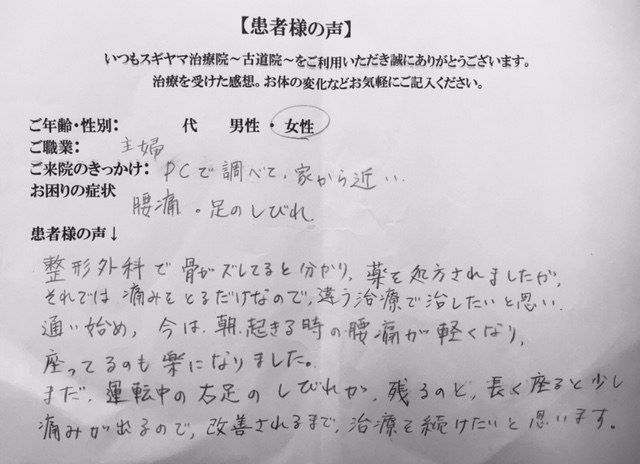 【患者様の声】
いつもスギヤマ治療院～古道院～をご利用いただき誠にありがとうございます。
治療を受けた感想。お体の変化などお気軽にご記入ください。
ご年齢・性別： 代 男性・女性
ご職業： 主婦
ご来院のきっかけ： PCで調べて、家から近い
お困りの症状
腰痛。足のしびれ
患者様の声↓
整形外科で骨がズレてると分かり、薬を処方されましたが、
それでは痛みをとるだけなので、違う治療で治したいと思い
通い始め、今は、朝、起きる時の腰痛が軽くなり、
座ってるのも楽になりました。
まだ、運転中の右足のしびれが、残るのと、長く座ると少し
痛みが出るので、改善されるまで、治療を続けたいと思います。